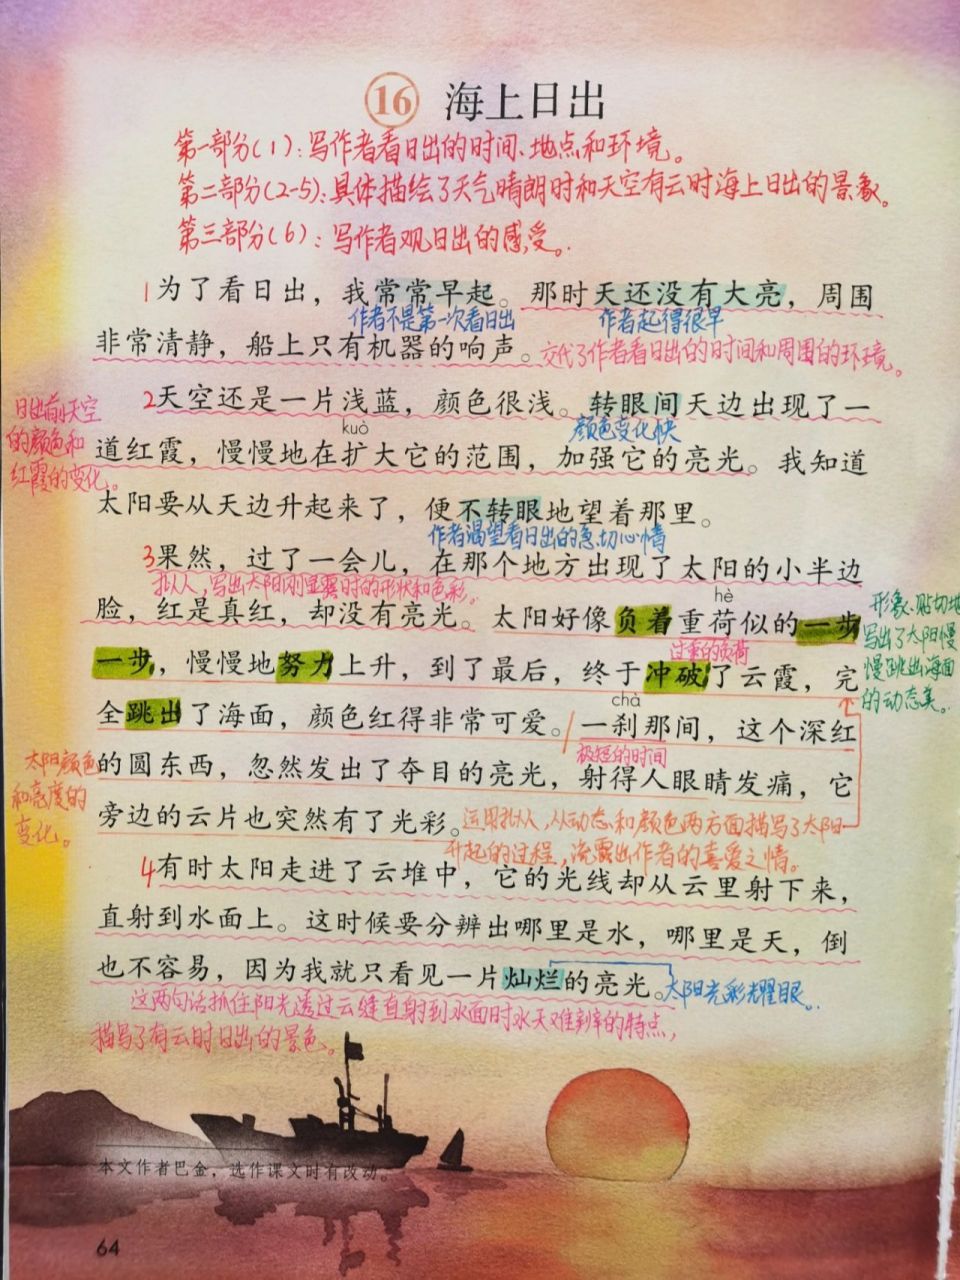 16 海上日出
第一部分(1):写作者看日出的时间、地点和环境。
第二部分(2-5):具体描绘了天气晴朗时和天空有云时海上日出的景象。
第三部分(6):写作者观日出的感受。
1为了看日出，我常常早起。那时天还没有大亮，周围
作者不是第一次看日出 作者起得很早
非常清静，船上只有机器的响声。交代了作者看日出的时间和周围的环境。
2天空还是一片浅蓝，颜色很浅。转眼间天边出现了一
日出前天空
的颜色和
红霞的变化。
kuò
颜色变化快
道红霞，慢慢地在扩大它的范围，加强它的亮光。我知道
太阳要从天边升起来了，便不转眼地望着那里。
作者渴望看日出的急切心情
3果然，过了一会儿，在那个地方出现了太阳的小半边
拟人，写出太阳刚显露时的形状和色彩。
hè
脸，红是真红，却没有亮光。太阳好像负着重荷似的一步
形象、贴切地
写出了太阳慢
慢跳出海面
的动态美。
过重的负荷
一步，慢慢地努力上升，到了最后，终于冲破了云霞，完
chà
全跳出了海面，颜色红得非常可爱。一刹那间，这个深红
极短的时间
太阳颜色
和亮度的
变化。
的圆东西，忽然发出了夺目的亮光，射得人眼睛发痛，它
旁边的云片也突然有了光彩。运用拟人，从动态和颜色两方面描写了太阳
升起的过程，流露出作者的喜爱之情。
4有时太阳走进了云堆中，它的光线却从云里射下来，
直射到水面上。这时候要分辨出哪里是水，哪里是天，倒
也不容易，因为我就只看见一片灿烂的亮光。太阳光彩耀眼。
这两句话抓住阳光透过云缝直射到水面时水天难辨的特点，
描写了有云时日出的景色。
本文作者巴金，选作课文时有改动。
64